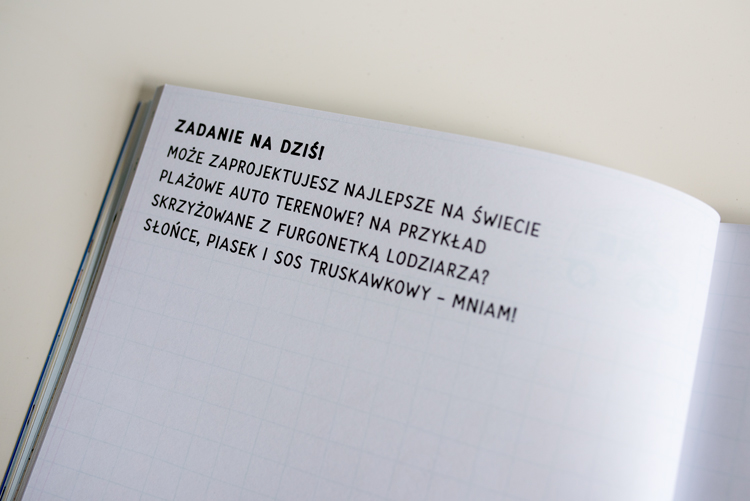 ZADANIE NA DZIŚ!
MOŻE ZAPROJEKTUJESZ NAJLEPSZE NA ŚWIECIE
PLAŻOWE AUTO TERENOWE? NA PRZYKŁAD
SKRZYŻOWANE Z FURGONETKĄ LODZIARZA?
SŁOŃCE, PIASEK I SOS TRUSKAWKOWY – MNIAM!